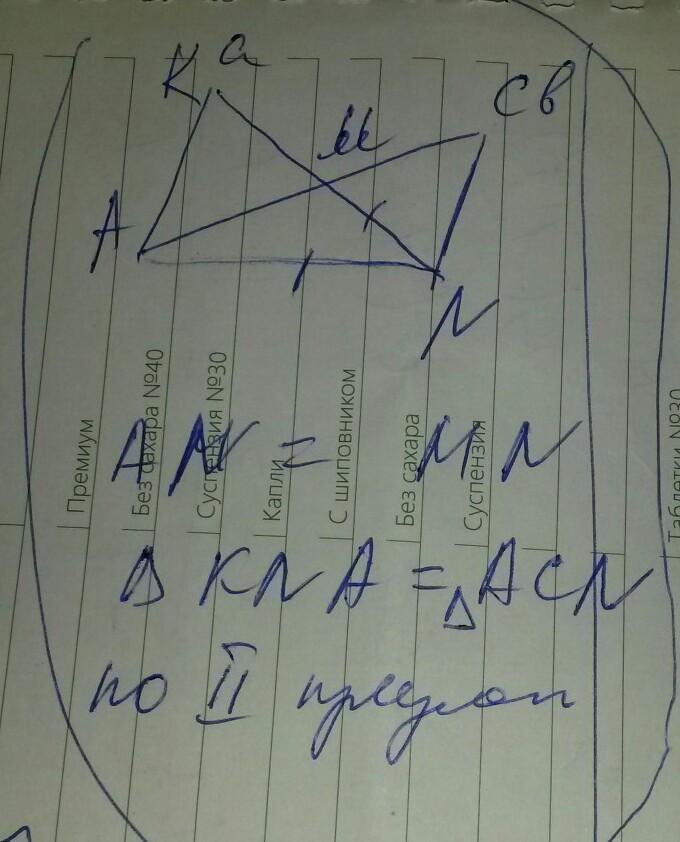 К а
М
С в
А
N
AN = MN
Δ KNA = Δ ACN
по II
Премиум
Без сахара №40
Суспензия №30
Капли
С шиповником
Без сахара
Суспензия
Таблетки №30